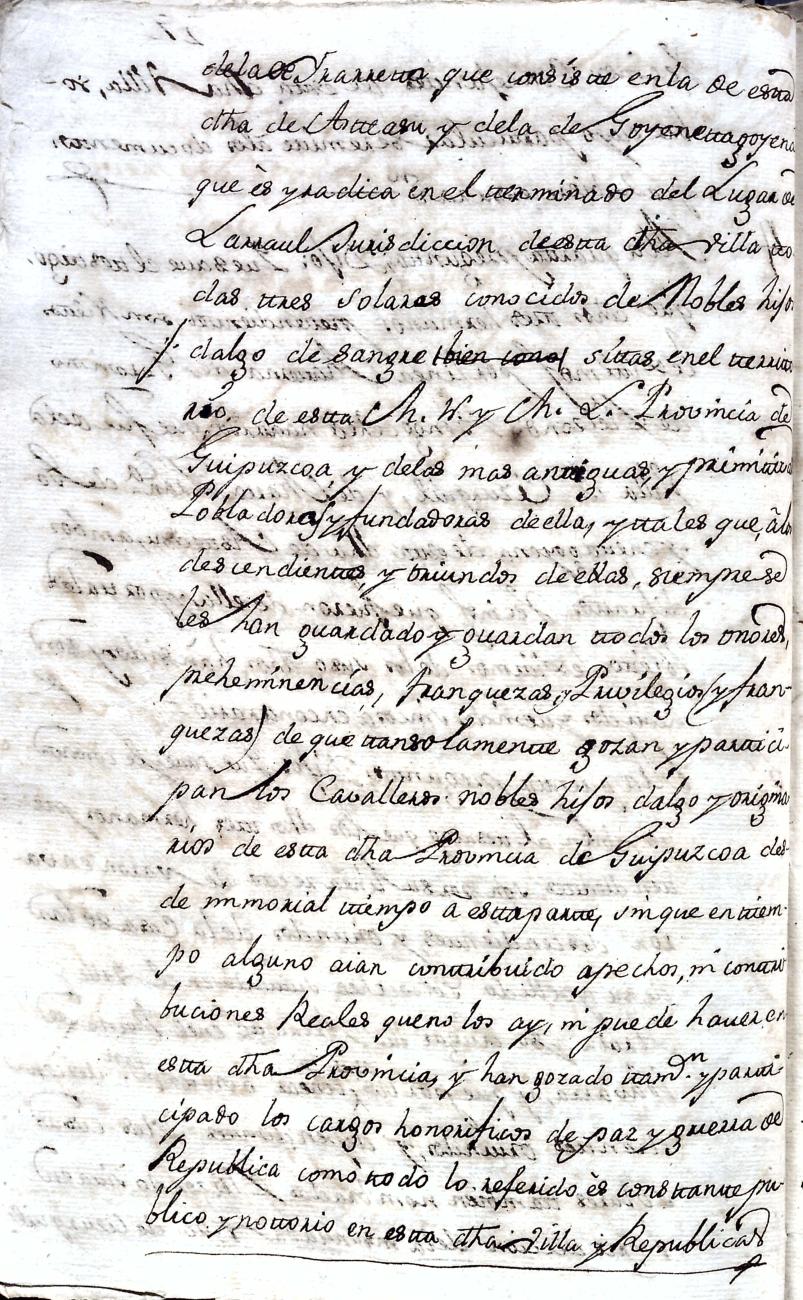 dela de Yrarreta que consiste enla de esta
dha de Asteasu, y dela de Goyenettagoyena
que ès y radica en el terminado del Lugar de
Larraul Jurisdiccion de esta dha villa to
das tres solares conocidos de Nobles hijos
dalgo de sangre (bien como) sitas, en el territo
rio, de esta M. N. y M. L. Provincia de
Guipuzcoa, y delas mas antiguas, y primitivas
Pobladoras (y fundadoras de ella, y tales que, à los
descendientes, y oriundos de ellas, siempre se
les han guardado y guardan todos los onores,
preheminencias, franquezas, y Privilegios (y fran-
quezas) de que tansolamente gozan y partici
pan los Cavalleros nobles hijos dalgo y origina
rios de esta dha Provincia de Guipuzcoa des-
de inmorial tiempo à esta parte, sin que en tiem-
po alguno aian contribuido a pechos, ni contri
buciones Reales que no los ay, ni puede haver en
esta dha Provincia, y han gozado tamvn. y parti-
cipado los cargos honorificos de paz y guerra de
Republica como todo lo referido ès constante pu-
blico, y nottorio en esta dha villa y Republicas